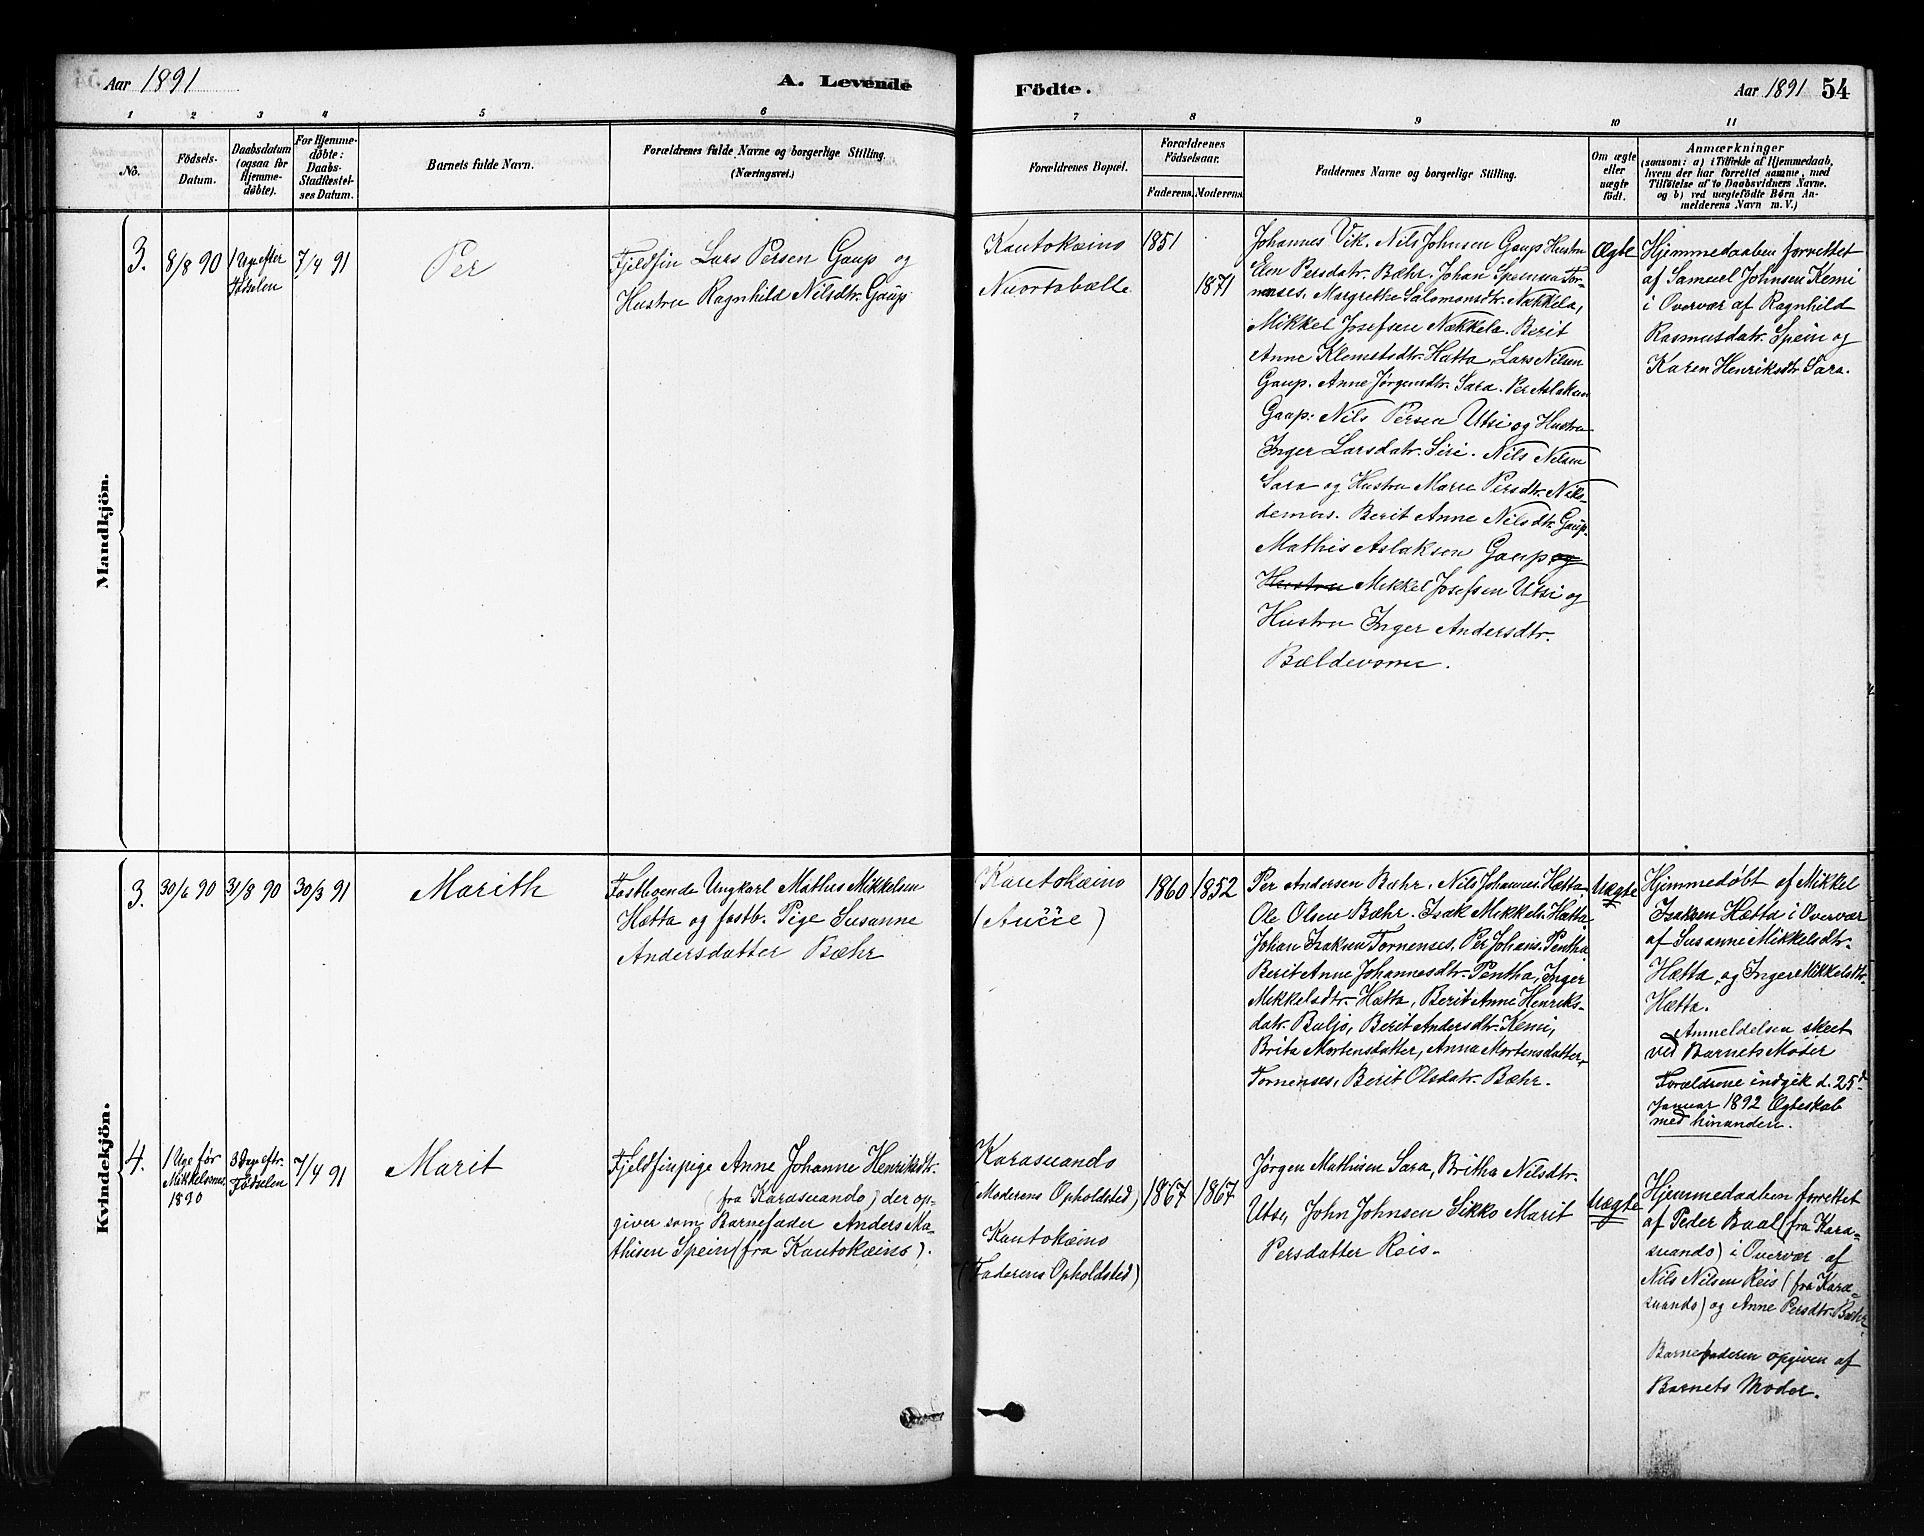 Aar 1891
A. Levende
Födte.
Aar 1891
54
1
2
3
4
5
6
7
8
9
10
11
No.
Födsels-
Datum.
Daabsdatum
(ogsaa for
Hjemme-
döbte).
For Hjemme-
døbte:
Daabs-
Stadfæstel-
ses Datum.
Barnets fulde Navn.
Forældrenes fulde Navne og borgerlige Stilling.
(Næringsvei.)
Forældrenes Bopæl.
Forældrenes
Födselsaar.
Faderens.
Moderens.
Faddernes Navne og borgerlige Stilling.
Om ægte
eller
uægte
født.
Anmærkninger
(saasom: a) i Tilfælde af Hjemmedaab,
hvem der har forrettet samme, med
Tilføielse af to Daabsvidners Navne.
og b) ved uægtefödte Børn An-
melderens Navn m. V.)
Mandkjön.
3.
8/8 90
1 Uge efter
Fødselen
7/4 91
Per
Fjeldfin Lars Persen Gaup og
Hustru Ragnhild Nilsdtr. Gaup
Kautokeino
Nuortabælle
1851
1871
Johannes Vik. Nils Johnsen Gaup Hustru
Elen Persdatr. Bæhr. Johan Speinsen Tor-
nenses. Margrethe Salomonsdtr. Nækkela,
Mikkel Josefsen Nækkela. Berit
Anne Klemetsdtr. Hætta, Lars Nilsen
Gaup. Anne Jørgensdtr. Sara. Per Aslaksen
Gaup. Nils Persen Utsi og Hustru
Inger Larsdatr. Siri. Nils Nilsen
Sara og Hustru Marie Persdtr. Niko-
demus. Berit Anne Nilsdtr. Gaup.
Mathis Aslaksen Gaup og
Hustru Mikkel Josefsen Utsi og
Hustru Inger Andersdtr.
Bældevome.
Ægte
Hjemmedaaben forrettet
af Samuel Johnsen Kemi
i Overvær af Ragnhild
Rasmusdatr. Spein og
Karen Henriksdtr. Sara.
Kvindekjön.
3.
30/6 90
31/8 90
30/3 91
Marith
Fastboende Ungkarl Mathis Mikkelsen
Hætta og fastb. Pige Susanne
Andersdatter Bæhr
Kautokeino
(Aucce)
1860
1852
Per Andersen Bæhr, Nils Johannes. Hætta
Ole Olsen Bæhr. Isak Mikkels. Hætta
Johan Isaksen Tornenses, Per Johans. Pentha
Berit Anne Johannesdtr. Pentha, Inger
Mikkelsdtr. Hætta, Berit Anne Henriks-
datr. Buljo, Berit Andersdtr. Kemi,
Brita Mortensdatter, Anna Mortensdatter
Tornenses, Berit Olsdatr. Bæhr.
Uægte
Hjemmedøbt af Mikkel
Isaksen Hætta i Overvær
af Susanne Mikkelsdtr.
Hætta, og Inger Mikkelsdtr.
Hætta.
Anmeldelsen skeet
ved Barnets Moder
Forældrene indgik d. 25de
Januar 1892 Ægteskab
med hinanden.
4.
1 Uge før
Mikkelsmes
1890
3 Dage eftr.
Fødselen
7/4 91
Marit
Fjeldfinpige Anne Johanne Henriksdtr.
(fra Karasuando) der op-
giver som Barnefader Anders Ma-
thisen Spein (fra Kautokeino).
Karasuando
(Moderens Opholdsted)
Kautokeino
(Faderens Opholdsted)
1867
1867
Jørgen Mathisen Sara, Britha Nilsdtr.
Utsi, John Johnsen Sikko Marit
Persdatter Reis.
Uægte
Hjemmedaaben forrettet
af Peder Baal (fra Kara-
suando) i Overvær af
Nils Nilsen Reis (fra Kara-
suando) og Anne Persdtr. Bæhr
Barnefaderen opgiven af
Barnets Moder.